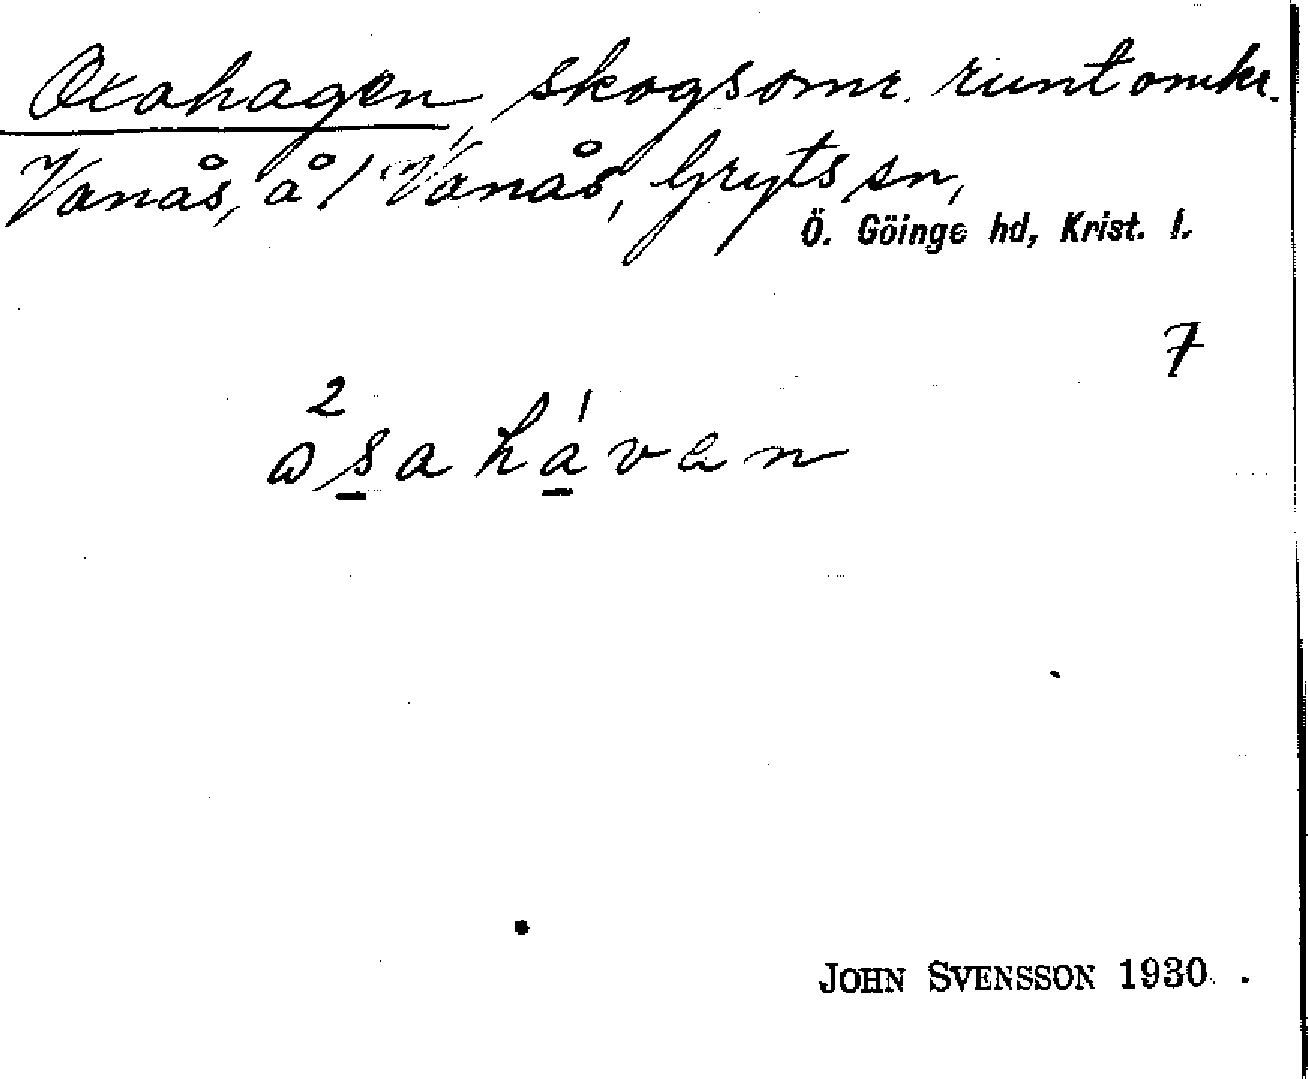 Oxahagen, skogsomr. runt omkr.
Vanås, å 1 Vanås, Gryts sn,
Ö. Göinge hd, Krist. l.
7
2
asahávan
JOHN SVENSSON 1930.